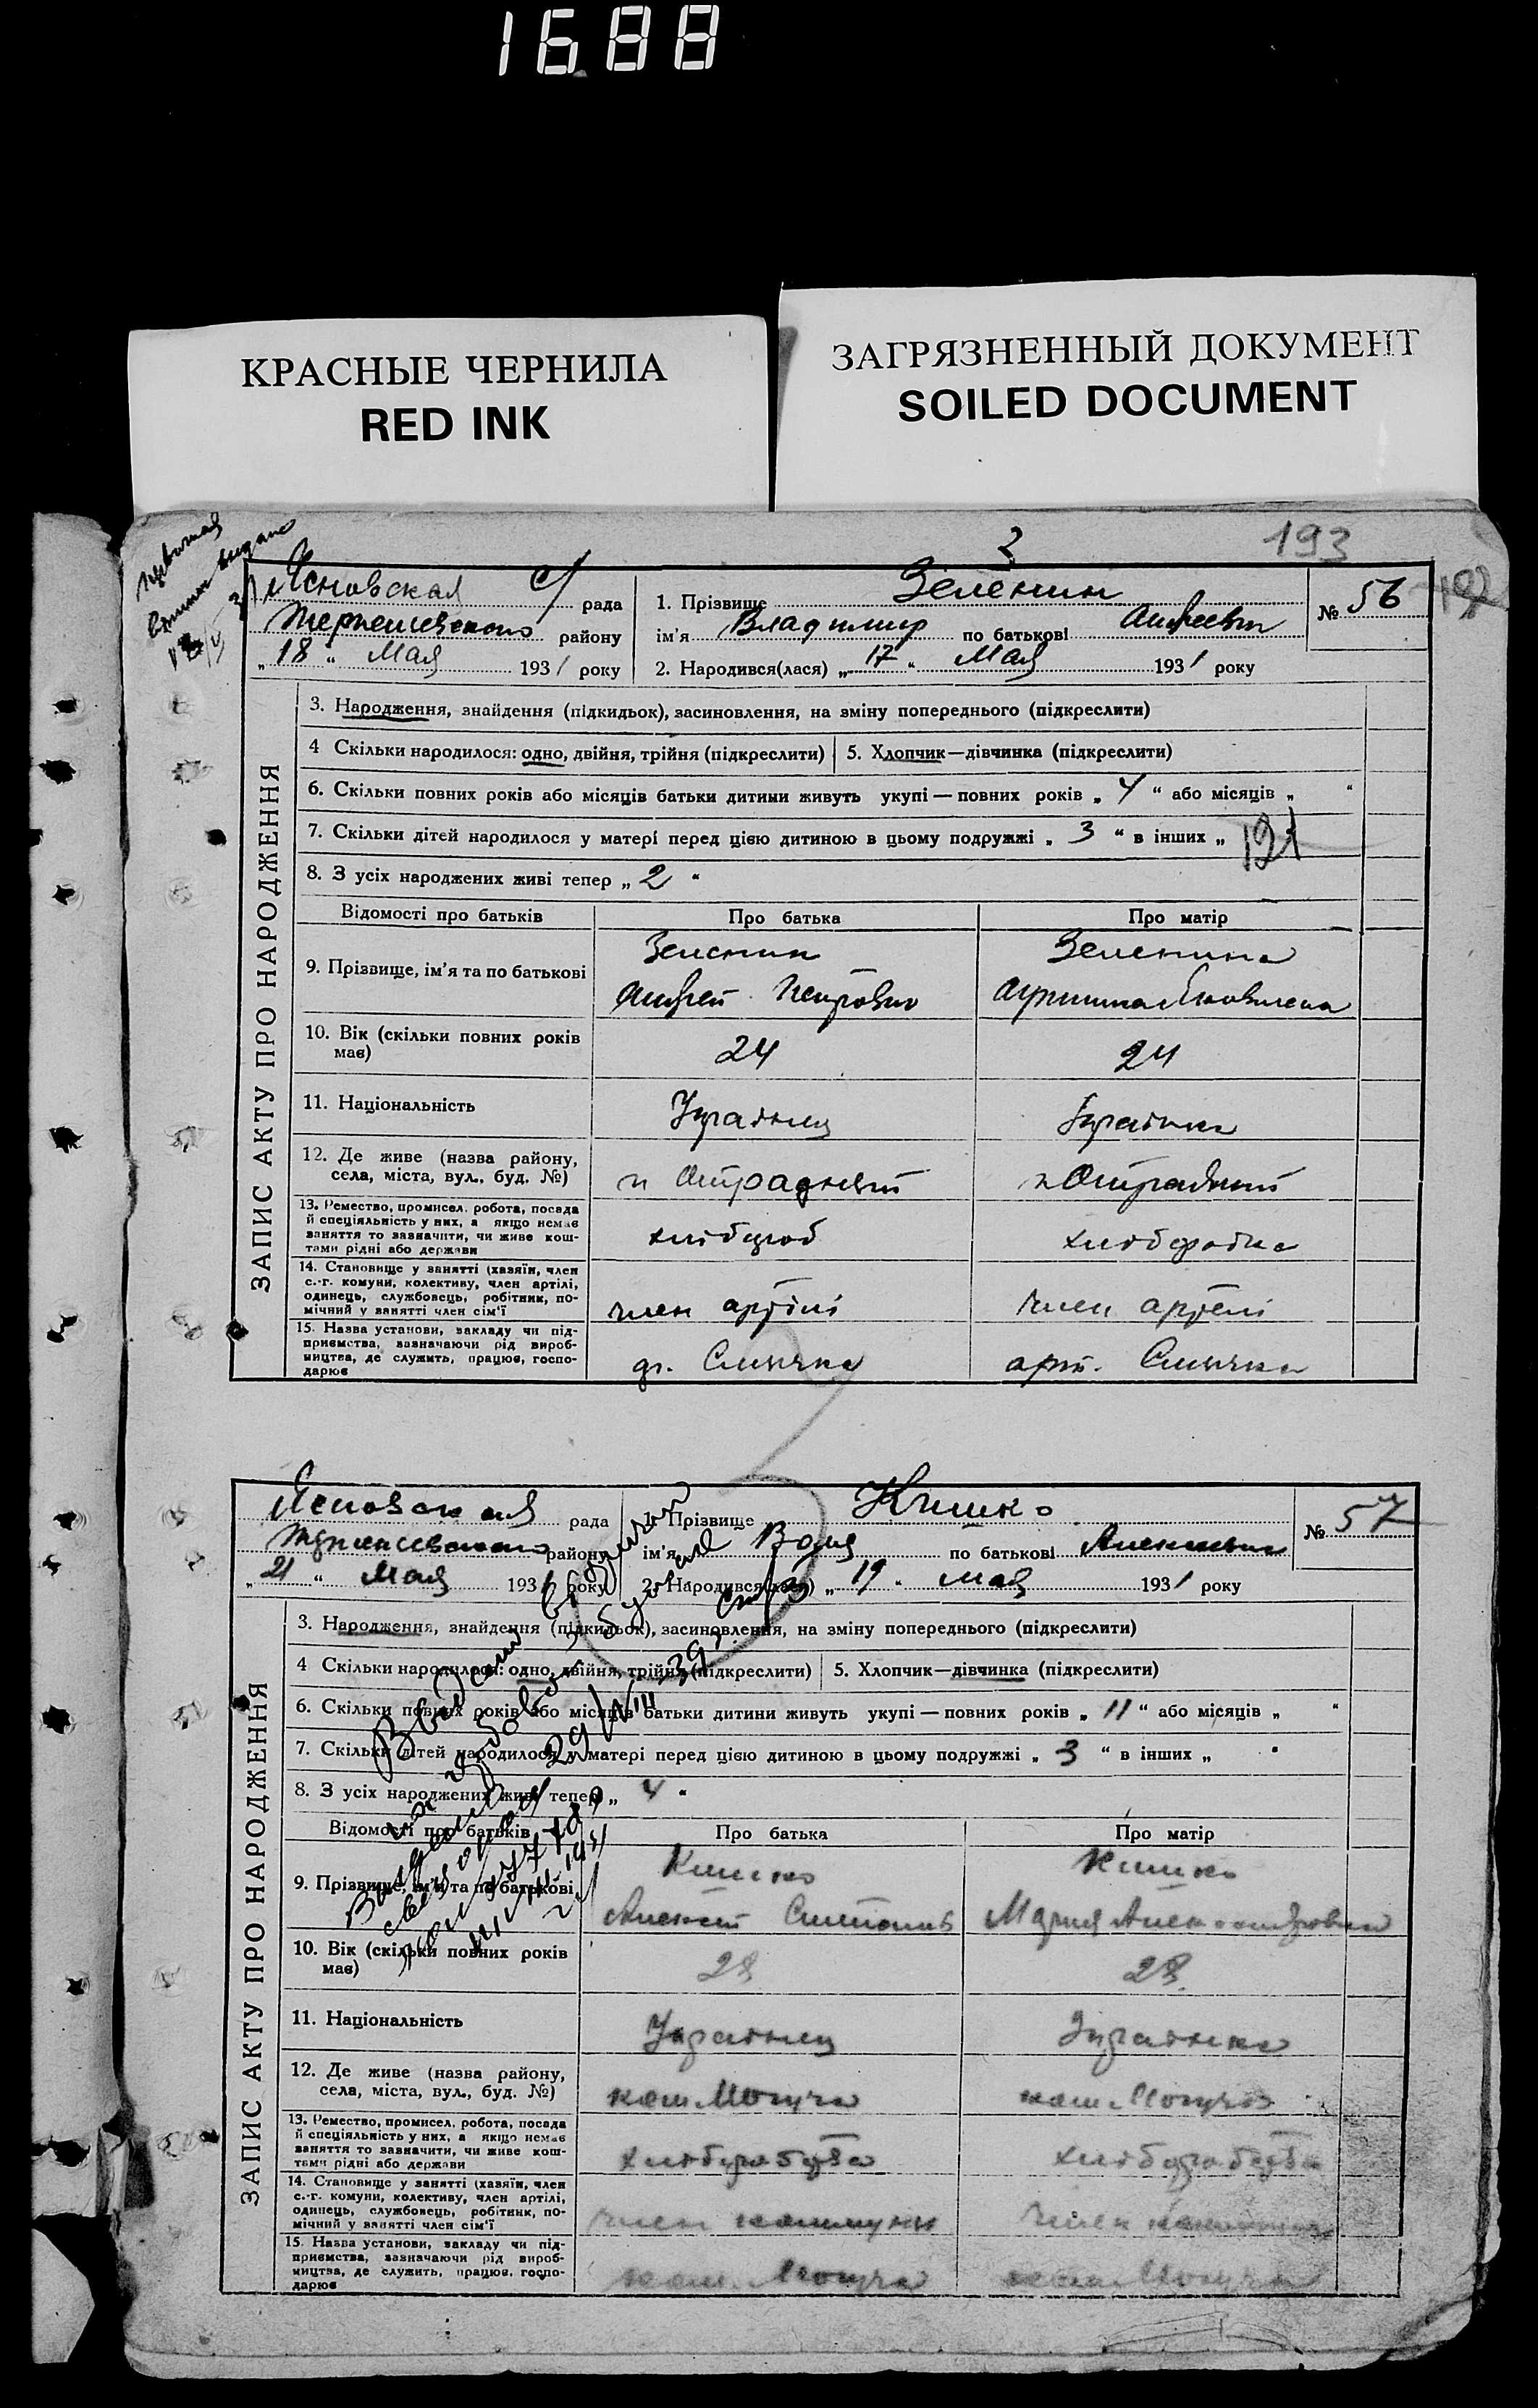 1688
КРАСНЫЕ ЧЕРНИЛА
RED INK
ЗАГРЯЗНЕННЫЙ ДОКУМЕНТ
SOILED DOCUMENT
193
рада
району
„18“ Мая 1931 року
1. Прізвище Зеленин
ім'я Владимир по батькові Андреевич
2. Народився(лася) „17“ Мая 1931 року
№ 56
192
ЗАПИС АКТУ ПРО НАРОДЖЕННЯ
3. Народження, знайдення (підкидьок), засиновлення, на зміну попереднього (підкреслити)
4 Скільки народилося: одно, двійня, трійня (підкреслити)
5. Хлопчик—дівчинка (підкреслити)
6. Скільки повних років або місяців батьки дитини живуть укупі — повних років „4“ або місяців „ “
7. Скільки дітей народилося у матері перед цією дитиною в цьому подружжі „3“ в інших „
8. З усіх народжених живі тепер „2“
Відомості про батьків
Про батька
Про матір
9. Прізвище, ім'я та по батькові
Зеленин
Андрей Петрович
Зеленина
Яковлевна
10. Вік (скільки повних років має)
24
24
11. Національність
Украинец
Украинка
12. Де живе (назва району, села, міста, вул., буд. №)
п Отрадный
п Отрадный
13. Ремество, промисел, робота, посада й спеціяльність у них, а якщо немає заняття то зазначити, чи живе коштами рідні або держави
хлібороб
хлібородка
14. Становище у занятті (хазяїн, член с.-г. комуни, колективу, член артілі, одинець, службовець, робітник, помічний у занятті член сім'ї
член артілі
член артелі
15. Назва установи, закладу чи підприємства, зазначаючи рід виробництва, де служить, працює, господарює
арт.
рада
району
„21“ Мая 1931 року
1. Прізвище Кишко
ім'я по батькові Алексеевич
2. Народився(лася) „19“ мая 1931 року
№ 57
ЗАПИС АКТУ ПРО НАРОДЖЕННЯ
3. Народження, знайдення (підкидьок), засиновлення, на зміну попереднього (підкреслити)
4 Скільки народилося: одно, двійня, трійня (підкреслити)
5. Хлопчик—дівчинка (підкреслити)
6. Скільки повних років або місяців батьки дитини живуть укупі — повних років „11“ або місяців „ “
7. Скільки дітей народилося у матері перед цією дитиною в цьому подружжі „3“ в інших „ “
8. З усіх народжених живі тепер „4“
Відомості про батьків
Про батька
Про матір
9. Прізвище, ім'я та по батькові
Кишко
Алексей
Кишко
Мария Александровна
10. Вік (скільки повних років має)
28
28
11. Національність
Украинец
Украинка
12. Де живе (назва району, села, міста, вул., буд. №)
13. Ремество, промисел, робота, посада й спеціяльність у них, а якщо немає заняття то зазначити, чи живе коштами рідні або держави
14. Становище у занятті (хазяїн, член с.-г. комуни, колективу, член артілі, одинець, службовець, робітник, помічний у занятті член сім'ї
член коммуни
член
15. Назва установи, закладу чи підприємства, зазначаючи рід виробництва, де служить, працює, господарює